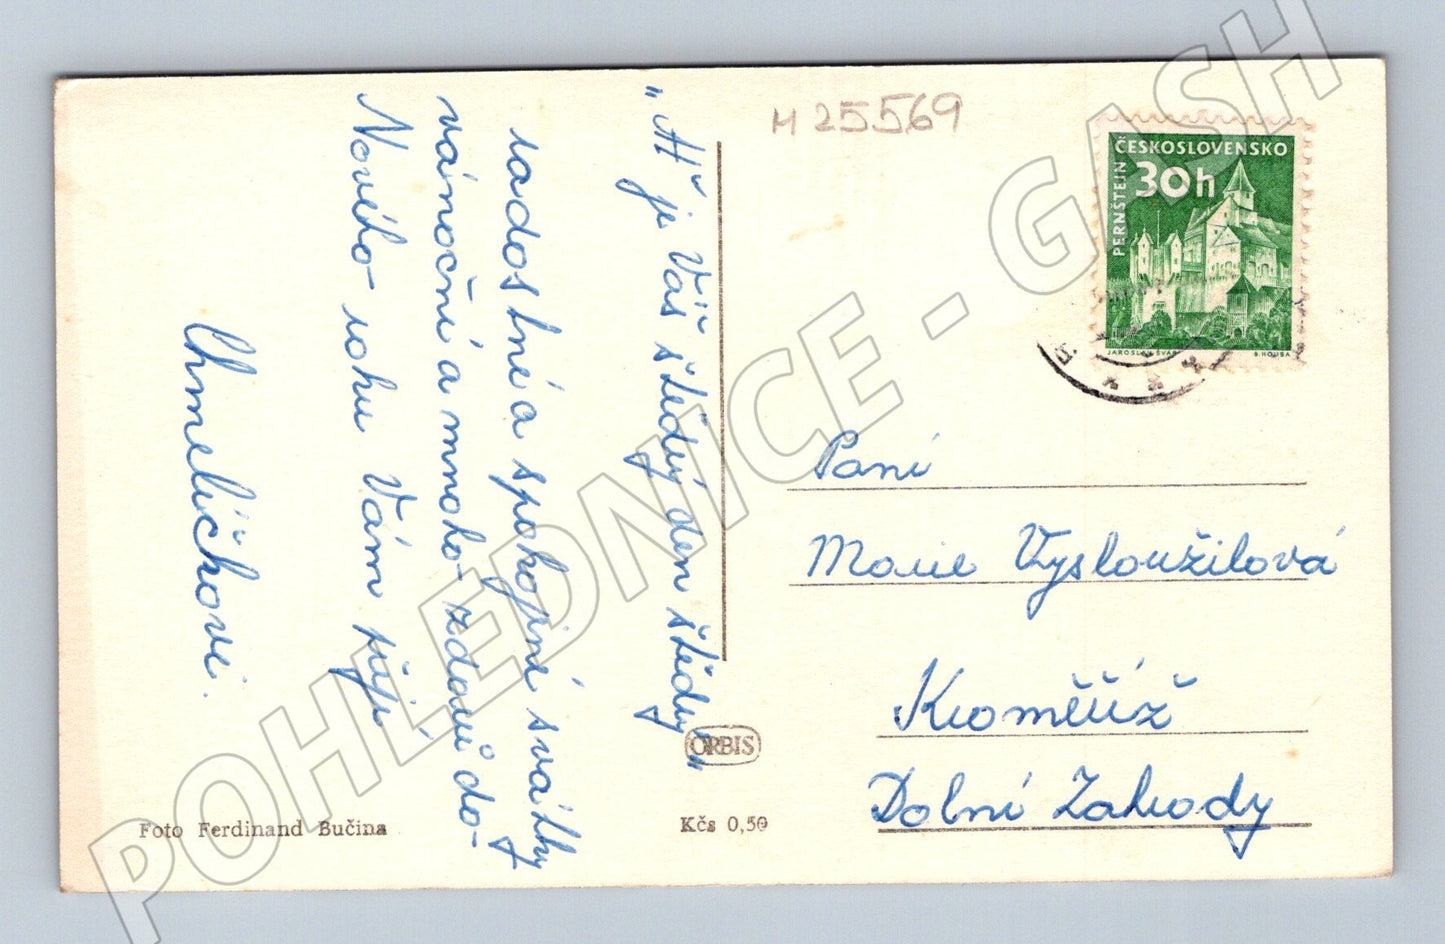 „Ať je Váš štědrý den štědrý“
radostné a spokojené svátky
vánoční a mnoho zdraví do
Nového roku Vám přejí
Chmelíčkovi.
Foto Ferdinand Bučina
ORBIS
Kčs 0,50
M 25569
ČESKOSLOVENSKO
PERNŠTEJN
30h
JAROSLAV ŠVÁB
B. HOUSA
Paní
Marie Vysloužilová
Kroměříž
Dolní Zahrady
POHLEDNICE - GASH